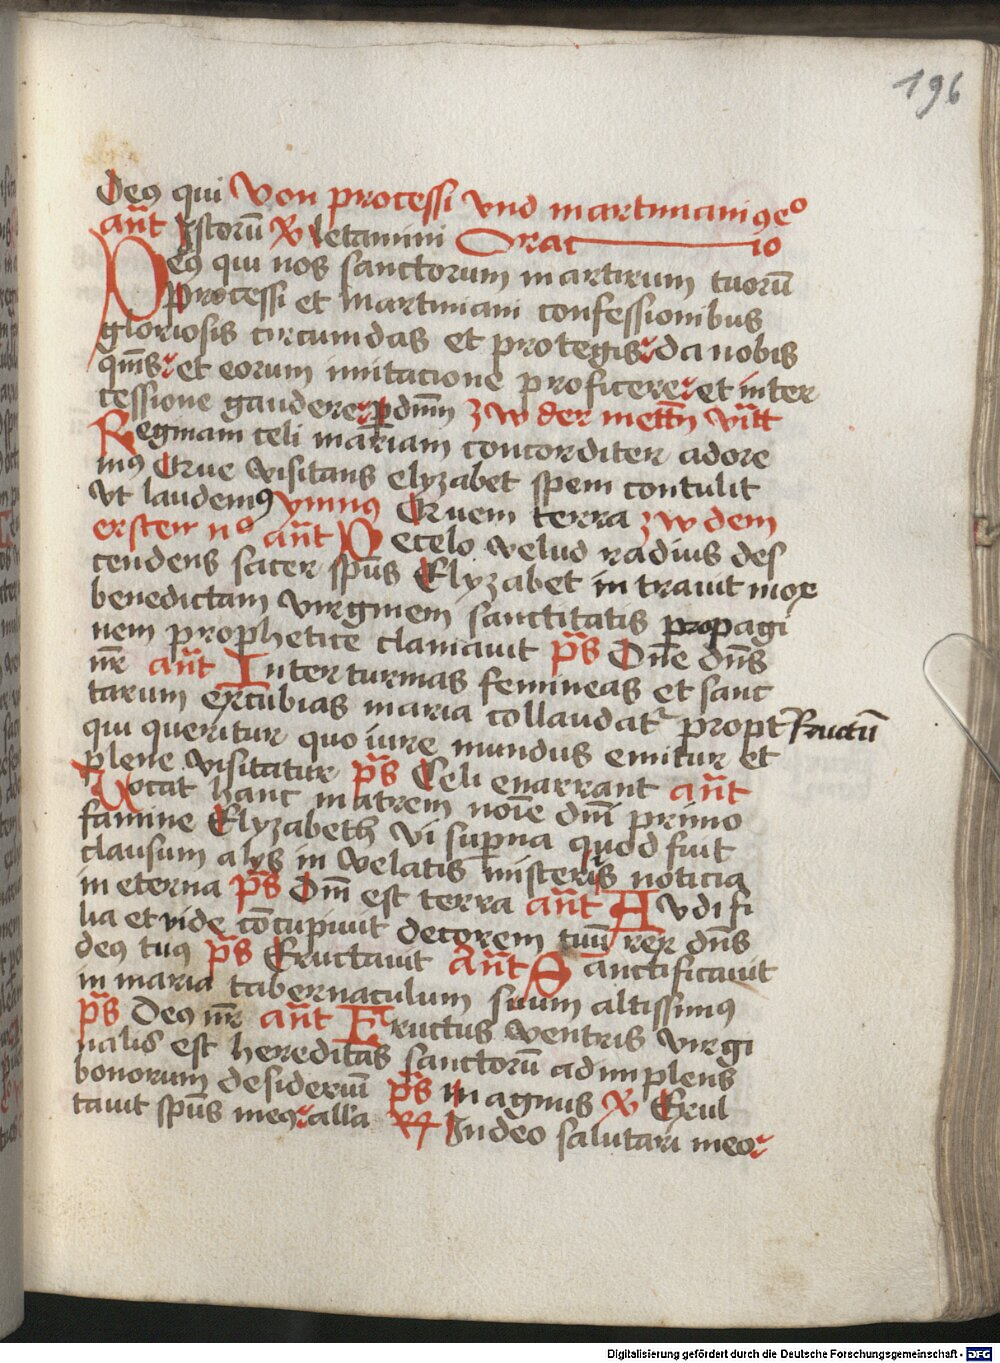 196
Deꝯ qui Von processi vnd martiniani ꝯeº
añt Istorū ℟ letamini Orac io
Deꝯ qui nos sanctorum martirum tuorū
processi et martiniani confessionibus
gloriosis circumdas et protegis da nobis
qm̄s et eorum imitacione proficere et inter
cessione gaudere p dnm̄ zw der mettn̄ vītt
Reginam celi mariam concorditer adore
mꝯ Que visitans elyzabet spem contulit
Vt laudemꝯ ymnꝯ Quem terra zw dem
ersten nº añt De celo velud radius des
cendens sacer sp̄us Elyzabet in trauit mox
benedictam virginem sanctitatis propagi
nem prophetice clamauit p̄s Dn̄e dn̄s
nr̄ añt Inter turmas femineas et sanc
tarum excubias maria collaudat propt fructū
qui queritur quo iure mundus emitur et
plene visitatur p̄s Celi enarrant añt
Vocat hanc matrem noīe dn̄i primo
famine Elyzabeth vi sup̄na quod fuit
clausum alys in velatis misterys noticia
in eterna p̄s Dn̄i est terra añt Avdi fi
lia et vide cōcupiuit decorem tuū rex dn̄s
deꝯ tuꝯ p̄s Eructauit Añt Sanctificauit
in maria tabernaculum suum altissimꝯ
p̄s Deꝯ nr̄ añt Fructus ventris virgi
nalis est hereditas sanctorū adimplens
bonorum desideriū p̄s Magnus ℣ Exul
tauit sp̄us meꝯ alla ℟ In deo salutari meo
Digitalisierung gefördert durch die Deutsche Forschungsgemeinschaft - DFG